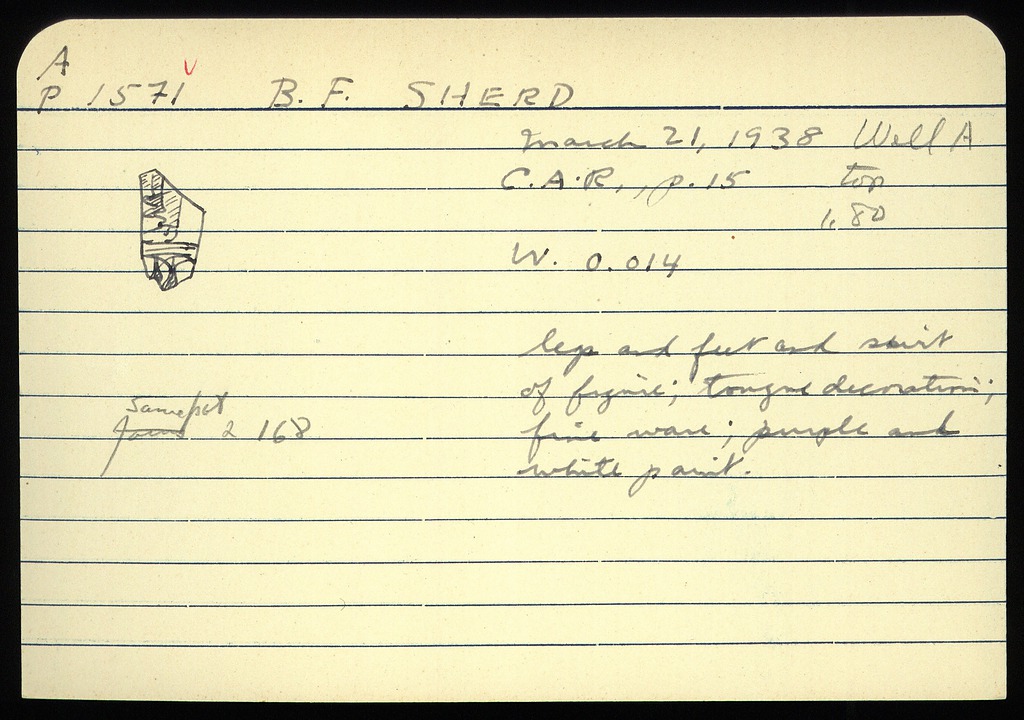 A
P 1571 B. F. SHERD
March 21, 1938 Well A
C.A.R., p. 15 top
1.80
W. 0.014
legs and feet and skirt
of figure; tongue decoration;
same pot
joins 2 168
fine ware; purple and
white paint.